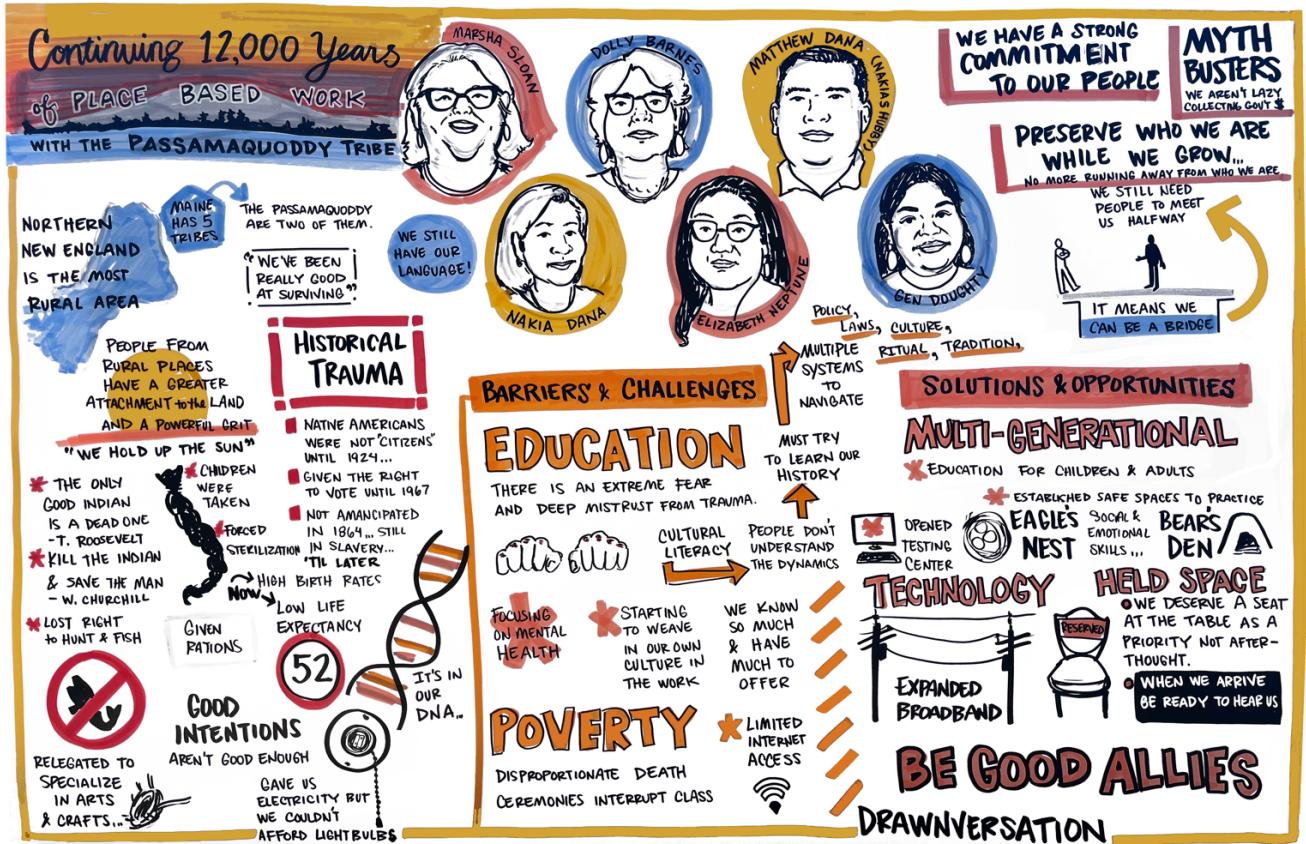 Continuing 12,000 Years
of PLACE BASED WORK
WITH THE PASSAMAQUODDY TRIBE
MARSHA SLOAN
DOLLY BARNES
MATTHEW DANA (NAKIAS HUBBY)
NAKIA DANA
ELIZABETH NEPTUNE
GEN DOUGHTY
WE HAVE A STRONG
COMMITMENT
TO OUR PEOPLE
MYTH
BUSTERS
WE AREN'T LAZY
COLLECTING GOV'T $
PRESERVE WHO WE ARE
WHILE WE GROW...
NO MORE RUNNING AWAY FROM WHO WE ARE
WE STILL NEED
PEOPLE TO MEET
US HALFWAY
IT MEANS WE
CAN BE A BRIDGE
NORTHERN
NEW ENGLAND
IS THE MOST
RURAL AREA
MAINE
HAS 5
TRIBES
THE PASSAMAQUODDY
ARE TWO OF THEM.
"WE'VE BEEN
REALLY GOOD
AT SURVIVING"
WE STILL
HAVE OUR
LANGUAGE!
PEOPLE FROM
RURAL PLACES
HAVE A GREATER
ATTACHMENT to the LAND
AND A POWERFUL GRIT
"WE HOLD UP THE SUN"
THE ONLY
GOOD INDIAN
IS A DEAD ONE
-T. ROOSEVELT
KILL THE INDIAN
& SAVE THE MAN
- W. CHURCHILL
LOST RIGHT
to HUNT & FISH
RELEGATED TO
SPECIALIZE
IN ARTS
& CRAFTS...
CHIDREN
WERE
TAKEN
FORCED
STERILIZATION
NOW
HIGH BIRTH RATES
LOW LIFE
EXPECTANCY
52
GIVEN
RATIONS
GOOD
INTENTIONS
AREN'T GOOD ENOUGH
GAVE US
ELECTRICITY BUT
WE COULDN'T
AFFORD LIGHTBULBS
HISTORICAL
TRAUMA
NATIVE AMERICANS
WERE NOT "CITIZENS"
UNTIL 1924...
GIVEN THE RIGHT
TO VOTE UNTIL 1967
NOT AMANCIPATED
IN 1864... STILL
IN SLAVERY...
'TIL LATER
IT'S IN
OUR
DNA...
BARRIERS & CHALLENGES
EDUCATION
THERE IS AN EXTREME FEAR
AND DEEP MISTRUST FROM TRAUMA.
CULTURAL
LITERACY
PEOPLE DON'T
UNDERSTAND
THE DYNAMICS
MUST TRY
TO LEARN OUR
HISTORY
MULTIPLE
SYSTEMS
TO
NAVIGATE
POLICY,
LAWS, CULTURE,
RITUAL, TRADITION,
FOCUSING
ON MENTAL
HEALTH
STARTING
TO WEAVE
IN OUR OWN
CULTURE IN
THE WORK
WE KNOW
SO MUCH
& HAVE
MUCH TO
OFFER
POVERTY
DISPROPORTIONATE DEATH
CEREMONIES INTERRUPT CLASS
LIMITED
INTERNET
ACCESS
SOLUTIONS & OPPORTUNITIES
MULTI-GENERATIONAL
EDUCATION FOR CHILDREN & ADULTS
ESTABLICHED SAFE SPACES TO PRACTICE
OPENED
TESTING
CENTER
EAGLE'S
NEST
SOCIAL &
EMOTIONAL
SKILLS...
BEAR'S
DEN
TECHNOLOGY
EXPANDED
BROADBAND
HELD SPACE
RESERVED
WE DESERVE A SEAT
AT THE TABLE AS A
PRIORITY NOT AFTER-
THOUGHT.
WHEN WE ARRIVE
BE READY TO HEAR US
BE GOOD ALLIES
DRAWNVERSATION